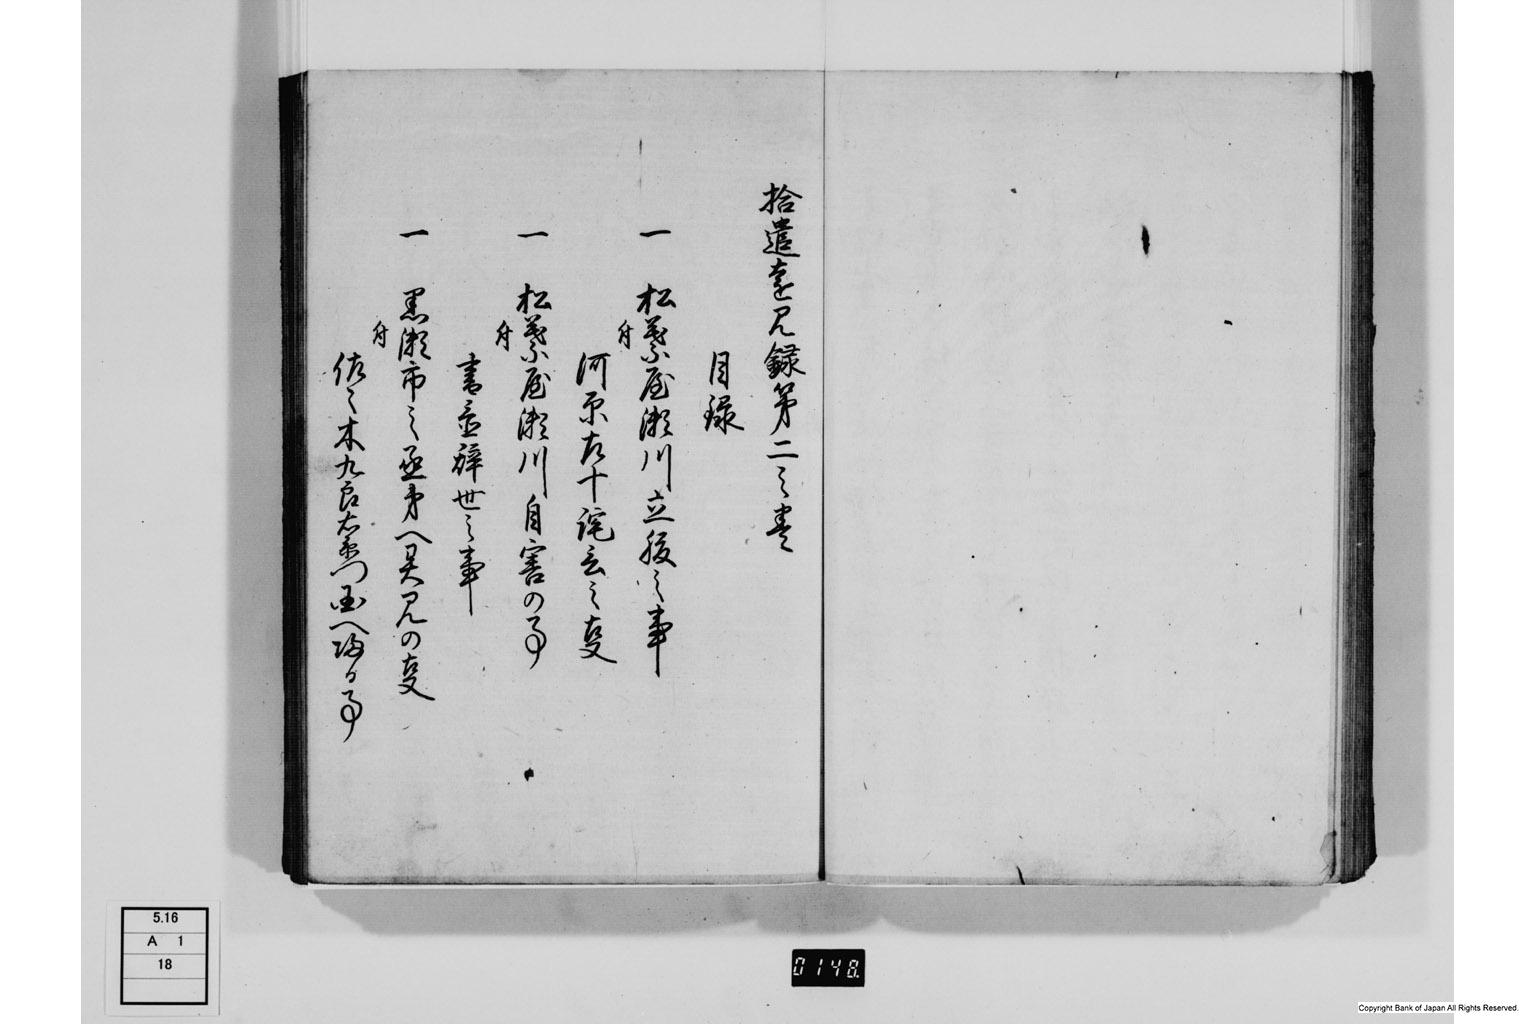 拾遺遠見録第二之巻
目録
一 松葉屋瀬川立腹之事
付
河原古十詫言之㕝
一 松葉屋瀬川自害の事
付
書置辞世之事
一 黒瀬市之丞弟へ異見の㕝
付
佐々木九郎右衛門国へ帰る事
5.16
A 1
18
0148.
Copyright Bank of Japan All Rights Reserved.